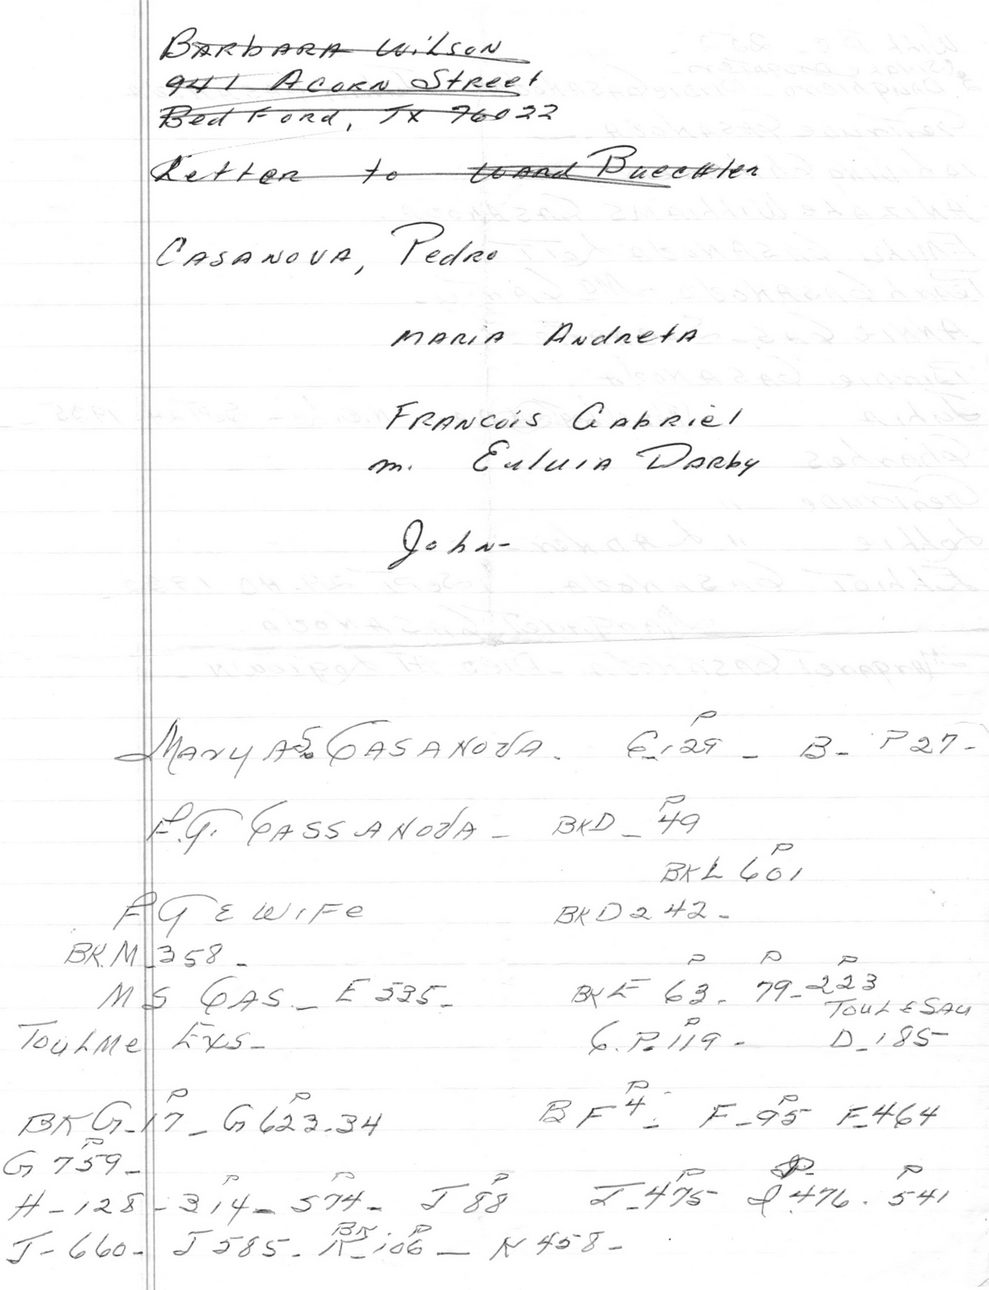 Barbara Wilson
941 Acorn Street
Bedford, TX 76022
Letter to Ward Buechler
Casanova, Pedro
Maria Andreta
Francois Gabriel
m. Euluia Darby
John-
Mary A.S. Casanova. C. P 29 - B - P 27-
F.G. Cassanova - BKD - P 49
BKL P 601
F G & Wife BKD 242-
BK.M 358-
M S Cas - E 535- BK E P 63- P 79- P 223
Toul & Sau
Toulme Exs- C.P. P 119- D-185-
BK G- P 17- G P 623-34 B F P 4- F- P 95 F-464
G P 759-
H-128- P 314- P 574- J P 88 I- P 475 P 476- P 541
J-660- J 585- BK K- P 106- K 458-